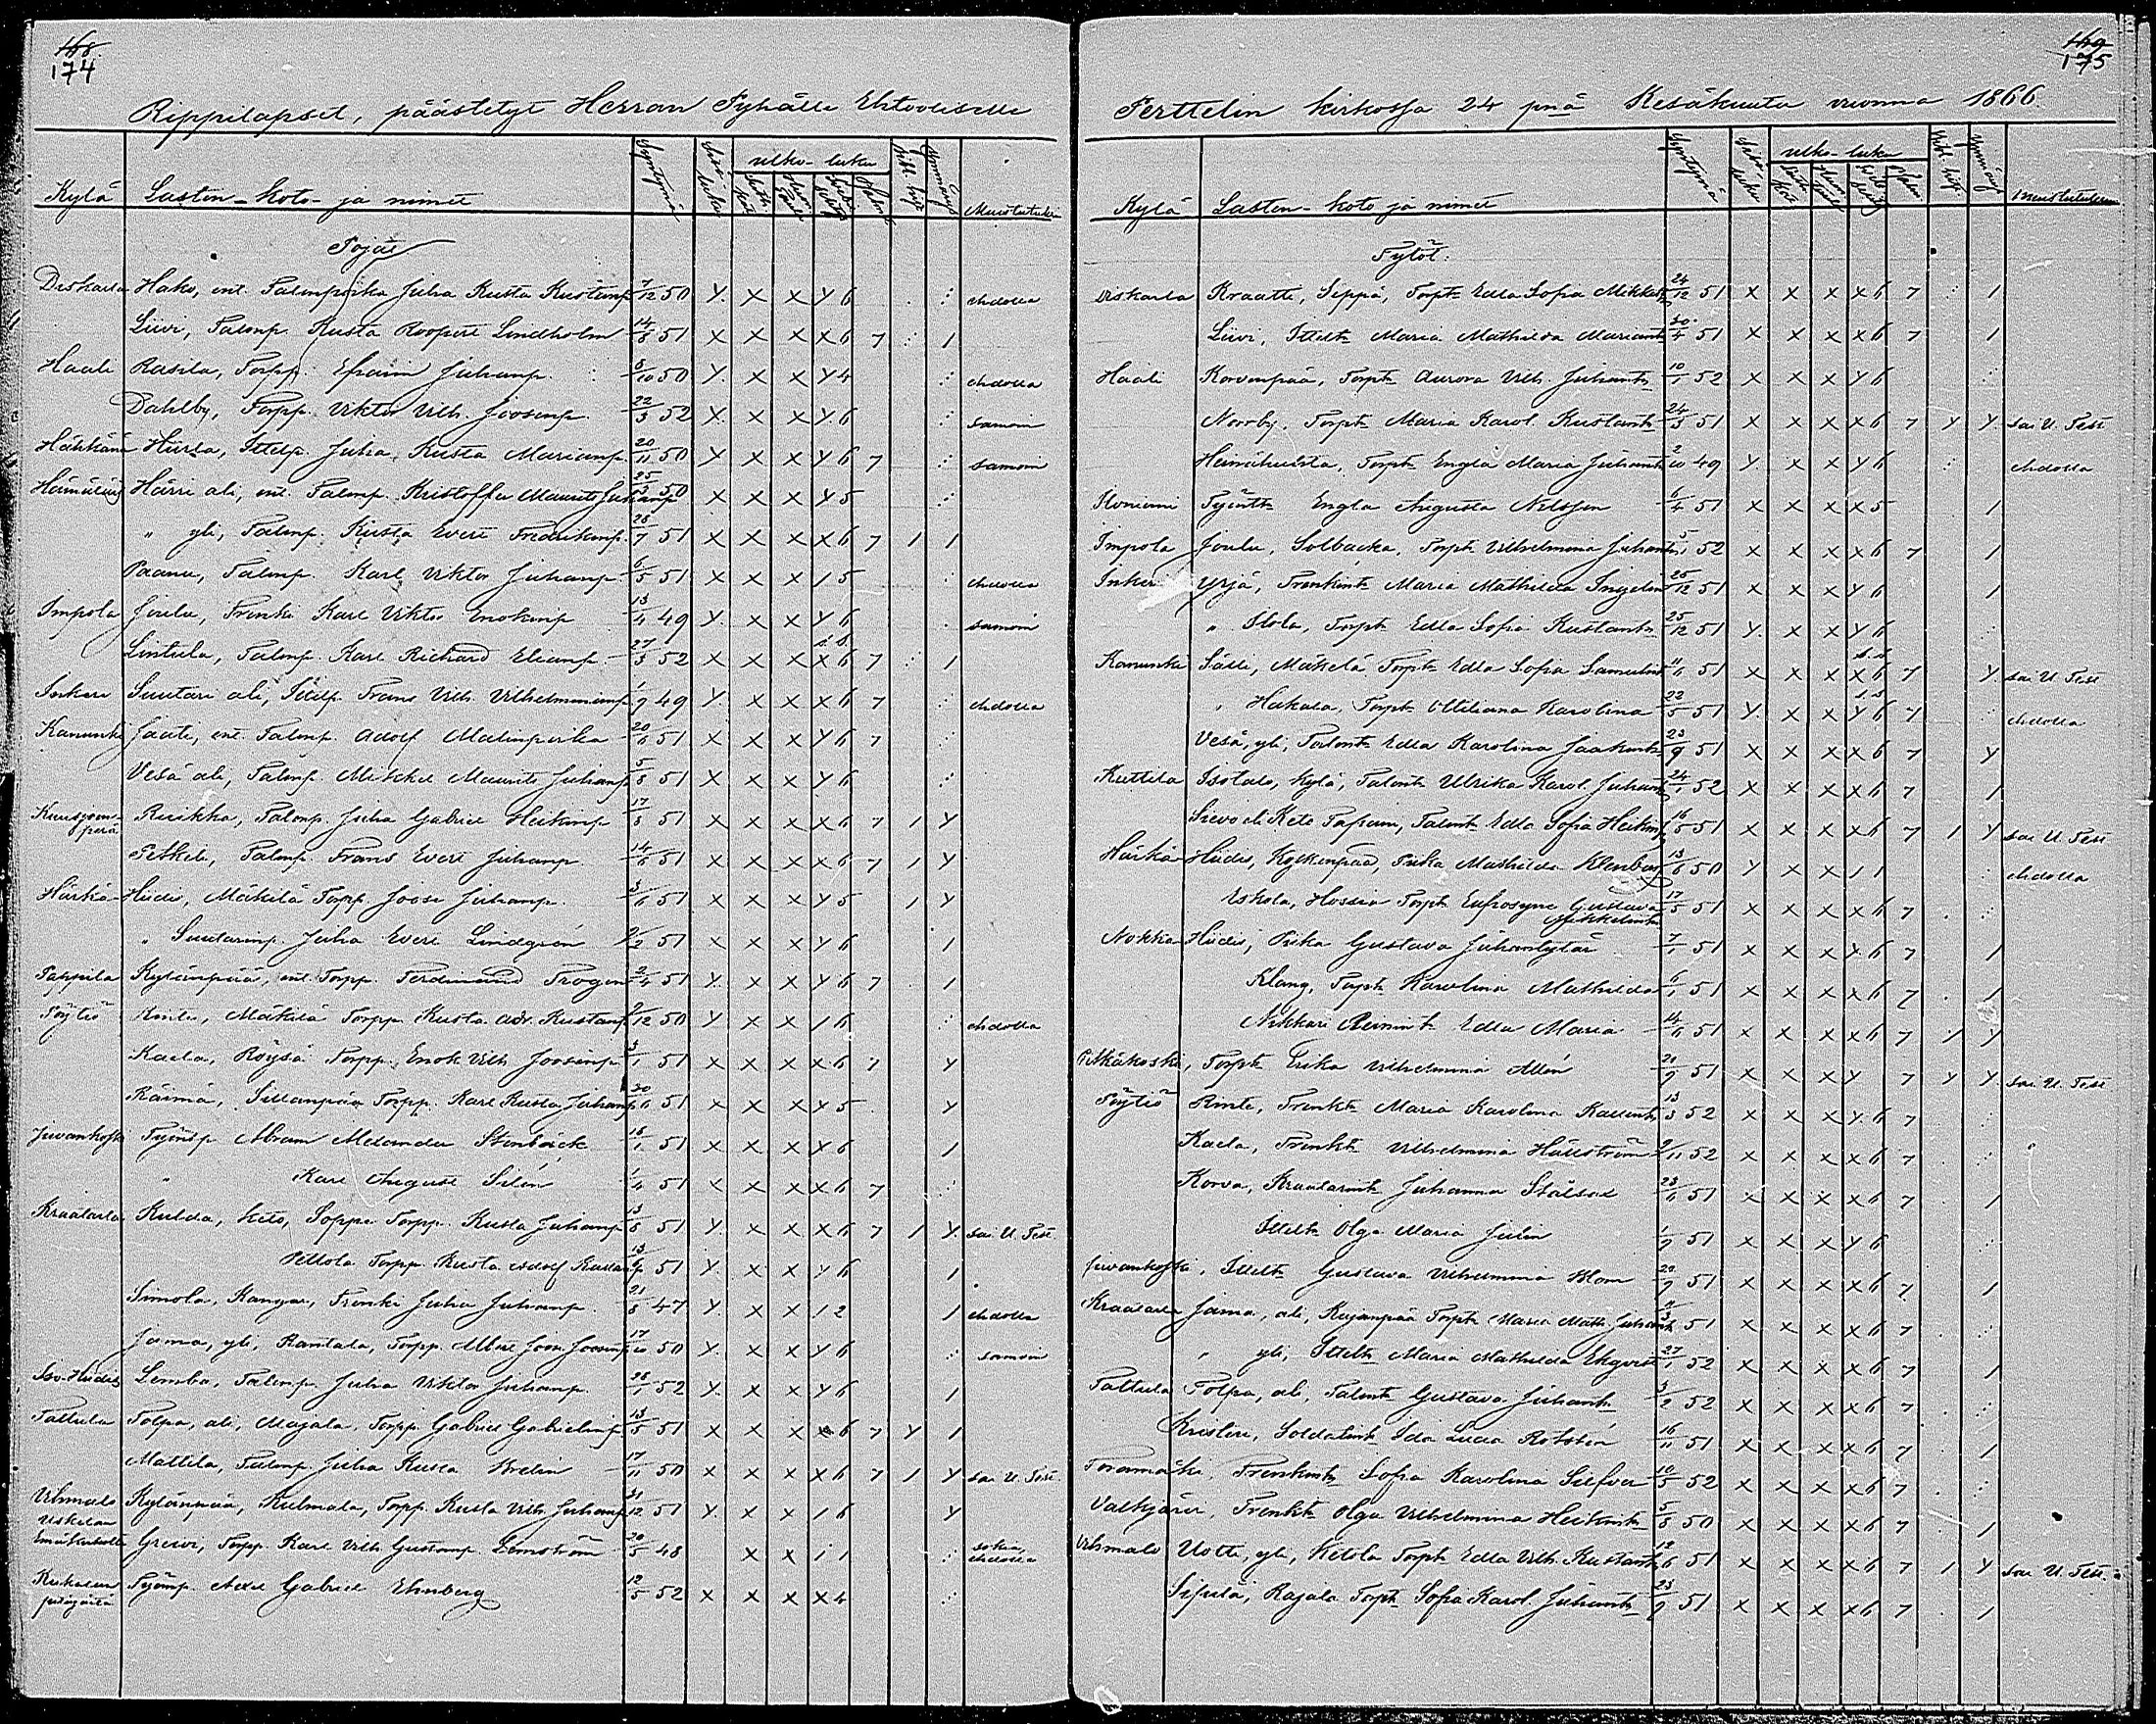 168
174
Rippilapset, päästetyt Herran Pyhälle Ehtoolliselle
Kylä Lasten-koto- ja nimet Syntynyt Sisä luku ulko-luku Bibl. hist. Ymmärrys Muistutuksia
Pojat
Hako, ent. Talonpoika Juha Kusta Kustanp. 7/12 50 y x x y 6 ehdolla
Liivi, Talonp. Kusta Roopert Lindholm 14/8 51 x x x x 6 7 1
Haali Rasila, Torpp. Efraim Juhanp. 8/10 50 y x x y 4 ehdolla
Dahlby, Torpp. Viktor Vilh. Joosenp. 22/3 52 x x x y 6 samoin
Ittelp. Juha Kusta Marianp. 20/11 50 y x x y 6 7 samoin
Härri ali, ent. Talonp. Kristoffer Maurits Juhanp. 25/3 50 x x x y 5
" yli, Talonp. Kusta Evert Fredrikinp. 28/7 51 x x x x 6 7 1 1
Paanu, Talonp. Karl Viktor Juhanp. 6/5 51 x x x 1 5 ehdolla
Impola Joulu, Trenki Karl Viktor Enokinp. 13/4 49 y x x y 6 samoin
Lintula, Talonp. Karl Richard Elianp. 27/3 52 x x x x 6 7 1
Inkere Suutari ali, Ittelp. Frans Vilh. Vilhelmiinanp. 1/9 49 y x x x 6 7 ehdolla
Kanunki Jaati, ent. Talonp. Adolf Malinpoika 20/6 51 x x x y 6 7
Vesä ali, Talonp. Mikkel Maurits Juhanp. 5/8 51 x x x y 6
Kuusjoenperä Ruikka, Talonp. Juha Gabriel Heikinp. 17/8 51 x x x x 6 7 1 y
Petkele, Talonp. Frans Evert Juhanp. 14/6 51 x x x x 6 7 1 y
Härkä-Hiidis, Mäkilä Torpp. Joosi Juhanp. 3/6 51 x x x y 5 1 y
" Suutarinp. Juha Evert Lindgrén 2/2 51 x x x y 6 1
Pappila Kylänpää, ent. Torpp. Ferdinand Frogen 2/4 51 y x x y 6 7 1
Pöytiö Rinte, Mäkilä Torpp. Kusta Adr. Kustanp. 2/12 50 y x x 1 6 ehdolla
Kaela, Röysä Torpp. Enok Vilh. Joosenp. 3/1 51 x x x x 6 7 y
Räimä, Sillanpää Torpp. Karl Kusta Juhanp. 30/6 51 x x x y 5 y
Juvankoski Työmp. Abram Melander Stenbäck 18/1 51 x x x y 6 1
" Karl August Silén 1/4 51 x x x x 6 7
Kraatarla Kulda, Keto, Soppi Torpp. Kusta Juhanp. 13/8 51 y x x x 6 7 1 y sai U. Test
Uttola Torpp. Kusta Adolf Kustanp. 51 y x x y 6 1
Simola, Kangas, Trenki Juha Juhanp. 21/8 47 y x x 1 2 1 ehdolla
Jama, yli, Rantala, Torpp. Albert Joosi Joosenp. 17/10 50 y x x y 6 samoin
Iso-Hiidis Lemba, Talonp. Juha Viktor Juhanp. 28/1 52 y x x y 6 1
Tattula Tolpa, ali, Majala, Torpp. Gabriel Gabrielinp. 13/5 51 x x x x 6 7 y 1
Mattila, Talonp. Juha Kusta Brelin 17/11 50 x x x x 6 7 1 y sai U. Test
Vihmalo Kylänpää, Kulmala, Torpp. Kusta Vilh. Juhanp. 31/12 51 y x x 1 6 y
Uskelan Greivi, Torpp. Karl Vilh. Gustanp. Lemström 20/5 48 x x 1 1 ehdolla
Työmp. Axel Gabriel Ehnberg 12/5 52 x x x x 4
169
175
Perttelin kirkossa 24 pnä Kesäkuuta vuonna 1866.
Kylä Lasten-koto ja nimet Syntynyt Sisä luku ulko-luku Bibl. hist. Ymmärrys Muistutuksia
Tytöt.
Kraatti, Seppä, Torpt. Edla Sofia Mikkelint. 24/12 51 x x x x 6 7 1
Liivi, Ittelt. Maria Mathilda Mariant. 30/4 51 x x x x 6 7 1
Haali Korvenpää, Torpt. Aurora Vilh. Juhant. 10/1 52 x x x y 6
Norrby, Torpt. Maria Karol. Kustant. 24/3 51 x x x x 6 7 y y sai U. Test
Torpt. Engla Maria Juhant. 2/10 49 y x x y 6 ehdolla
Iloniemi Työntt. Engla Augusta Nilsson 6/4 51 x x x x 5 1
Impola Joulu, Solbacka, Torpt. Vilhelmina Juhant. 5/1 52 x x x x 6 7 1
Inkere Yrjä, Trenkint. Maria Mathilda Ingelin 25/12 51 x x x y 6 1
" Ilola, Torpt. Edla Sofia Kustant. 25/12 51 y x x y 6
Kanunki Sälli, Mäkelä Torpt. Edla Sofia Samuelint. 11/11 51 x x x x 6 7 y sai U. Test
" Hakala, Torpt. Ottiliana Karolina 22/5 51 y x x y 6 7 ehdolla
Vesä, yli, Talont. Edla Karolina Jaakont. 23/9 51 x x x x 6 7 y
Kuttila Isotalo, Kylä, Talont. Ulrika Karol. Juhant. 24/1 52 x x x x 6 7 1
Talont. Edla Sofia Heikint. 16/5 51 x x x x 6 7 1 y sai U. Test
Härkä-Hiidis, Kylkenpää, Piika Mathilda Klenberg 13/6 50 y x x 1 1 ehdolla
Eskola, Hossia Torpt. Eufrosyne Gustava Mikkelint. 17/5 51 x x x x 6 7
Nokka-Hiidis, Piika Gustava Juhantytär 7/1 51 x x x y 6 7 1
Klang, Torpt. Karolina Mathilda 6/1 51 x x x x 6 7 1
Nikkari Reinint. Edla Maria 14/6 51 x x x x 6 7 y y
Pitkäkoski, Torpt. Erika Vilhelmina Allén 21/9 51 x x x y 7 y y sai U. Test
Pöytiö Rinte, Trenkt. Maria Karolina Kallent. 13/3 52 x x x y 6 7
Kaela, Trenkt. Vilhelmina Hällström 9/11 52 x x x x 6 7
Korva, Kraatarint. Juhanna Stålsai 23/6 51 x x x x 6 7 1
Ittelt. Olga Maria Julin 1/9 51 x x x y 6
Juvankoski, Ittelt. Gustava Vilhelmina Blom 29/7 51 x x x x 6 7 1
Kraatarla Jama, ali, Kujanpää Torpt. Maria Math. Juhant. 51 x x x x 6 7
" yli, Ittelt. Maria Mathilda Ekqvist 27/1 52 x x x x 6 7 1
Tattula Tolpa, ali, Talont. Gustava Juhant. 3/2 52 x x x x 6 7
Kristeri, Soldatint. Ida Lucia Rotstén 16/11 51 x x x x 6 7 1
Toramäki, Trenkint. Sofia Karolina Silfver 10/5 52 x x x x 6 7
Valkjärvi, Trenkt. Olga Vilhelmina Heikint. 5/8 50 x x x x 6 7 1
Vihmalo Uotti, yli, Ketola Torpt. Edla Vilh. Kustant. 12/6 51 x x x x 6 7 1 y sai U. Test.
Sipilä, Rajala Torpt. Sofia Karol. Juhant. 23/9 51 x x x x 6 7 1